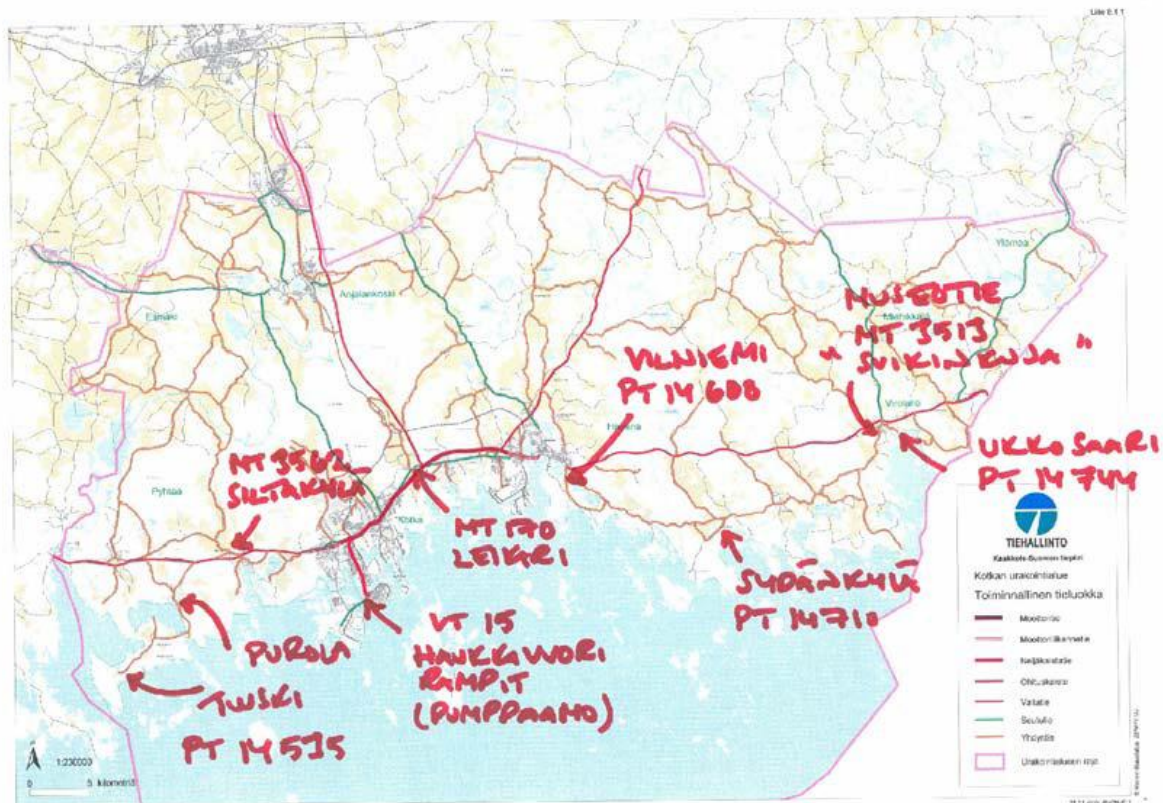 Liite E.1.1
Elimäki
Anjalankoski
Ylämaa
Miehikkälä
Virolahti
Hamina
Pyhtää
Kotka
MUSEOTIE
MT 3513
"SVIKINKUJA"
VILNIEMI
PT 14 608
UKKOSAARI
PT 14 744
MT 3562
SILTAKYLÄ
MT 170
LEIKARI
SYDÄNKYLÄ
PT 14710
VT 15
HAUKKAVUORI
RAMPIT
(PUMPPAAMO)
PUROLA
PT 14 535
TIEHALLINTO
Kaakkois-Suomen tiepiiri
Kotkan urakointialue
Toiminnallinen tieluokka
Moottoritie
Moottoriliikennetie
Nelikaistatie
Ohituskaista
Valtatie
Seututie
Yhdystie
Urakointialueen raja
1:230000
0 5 kilometriä